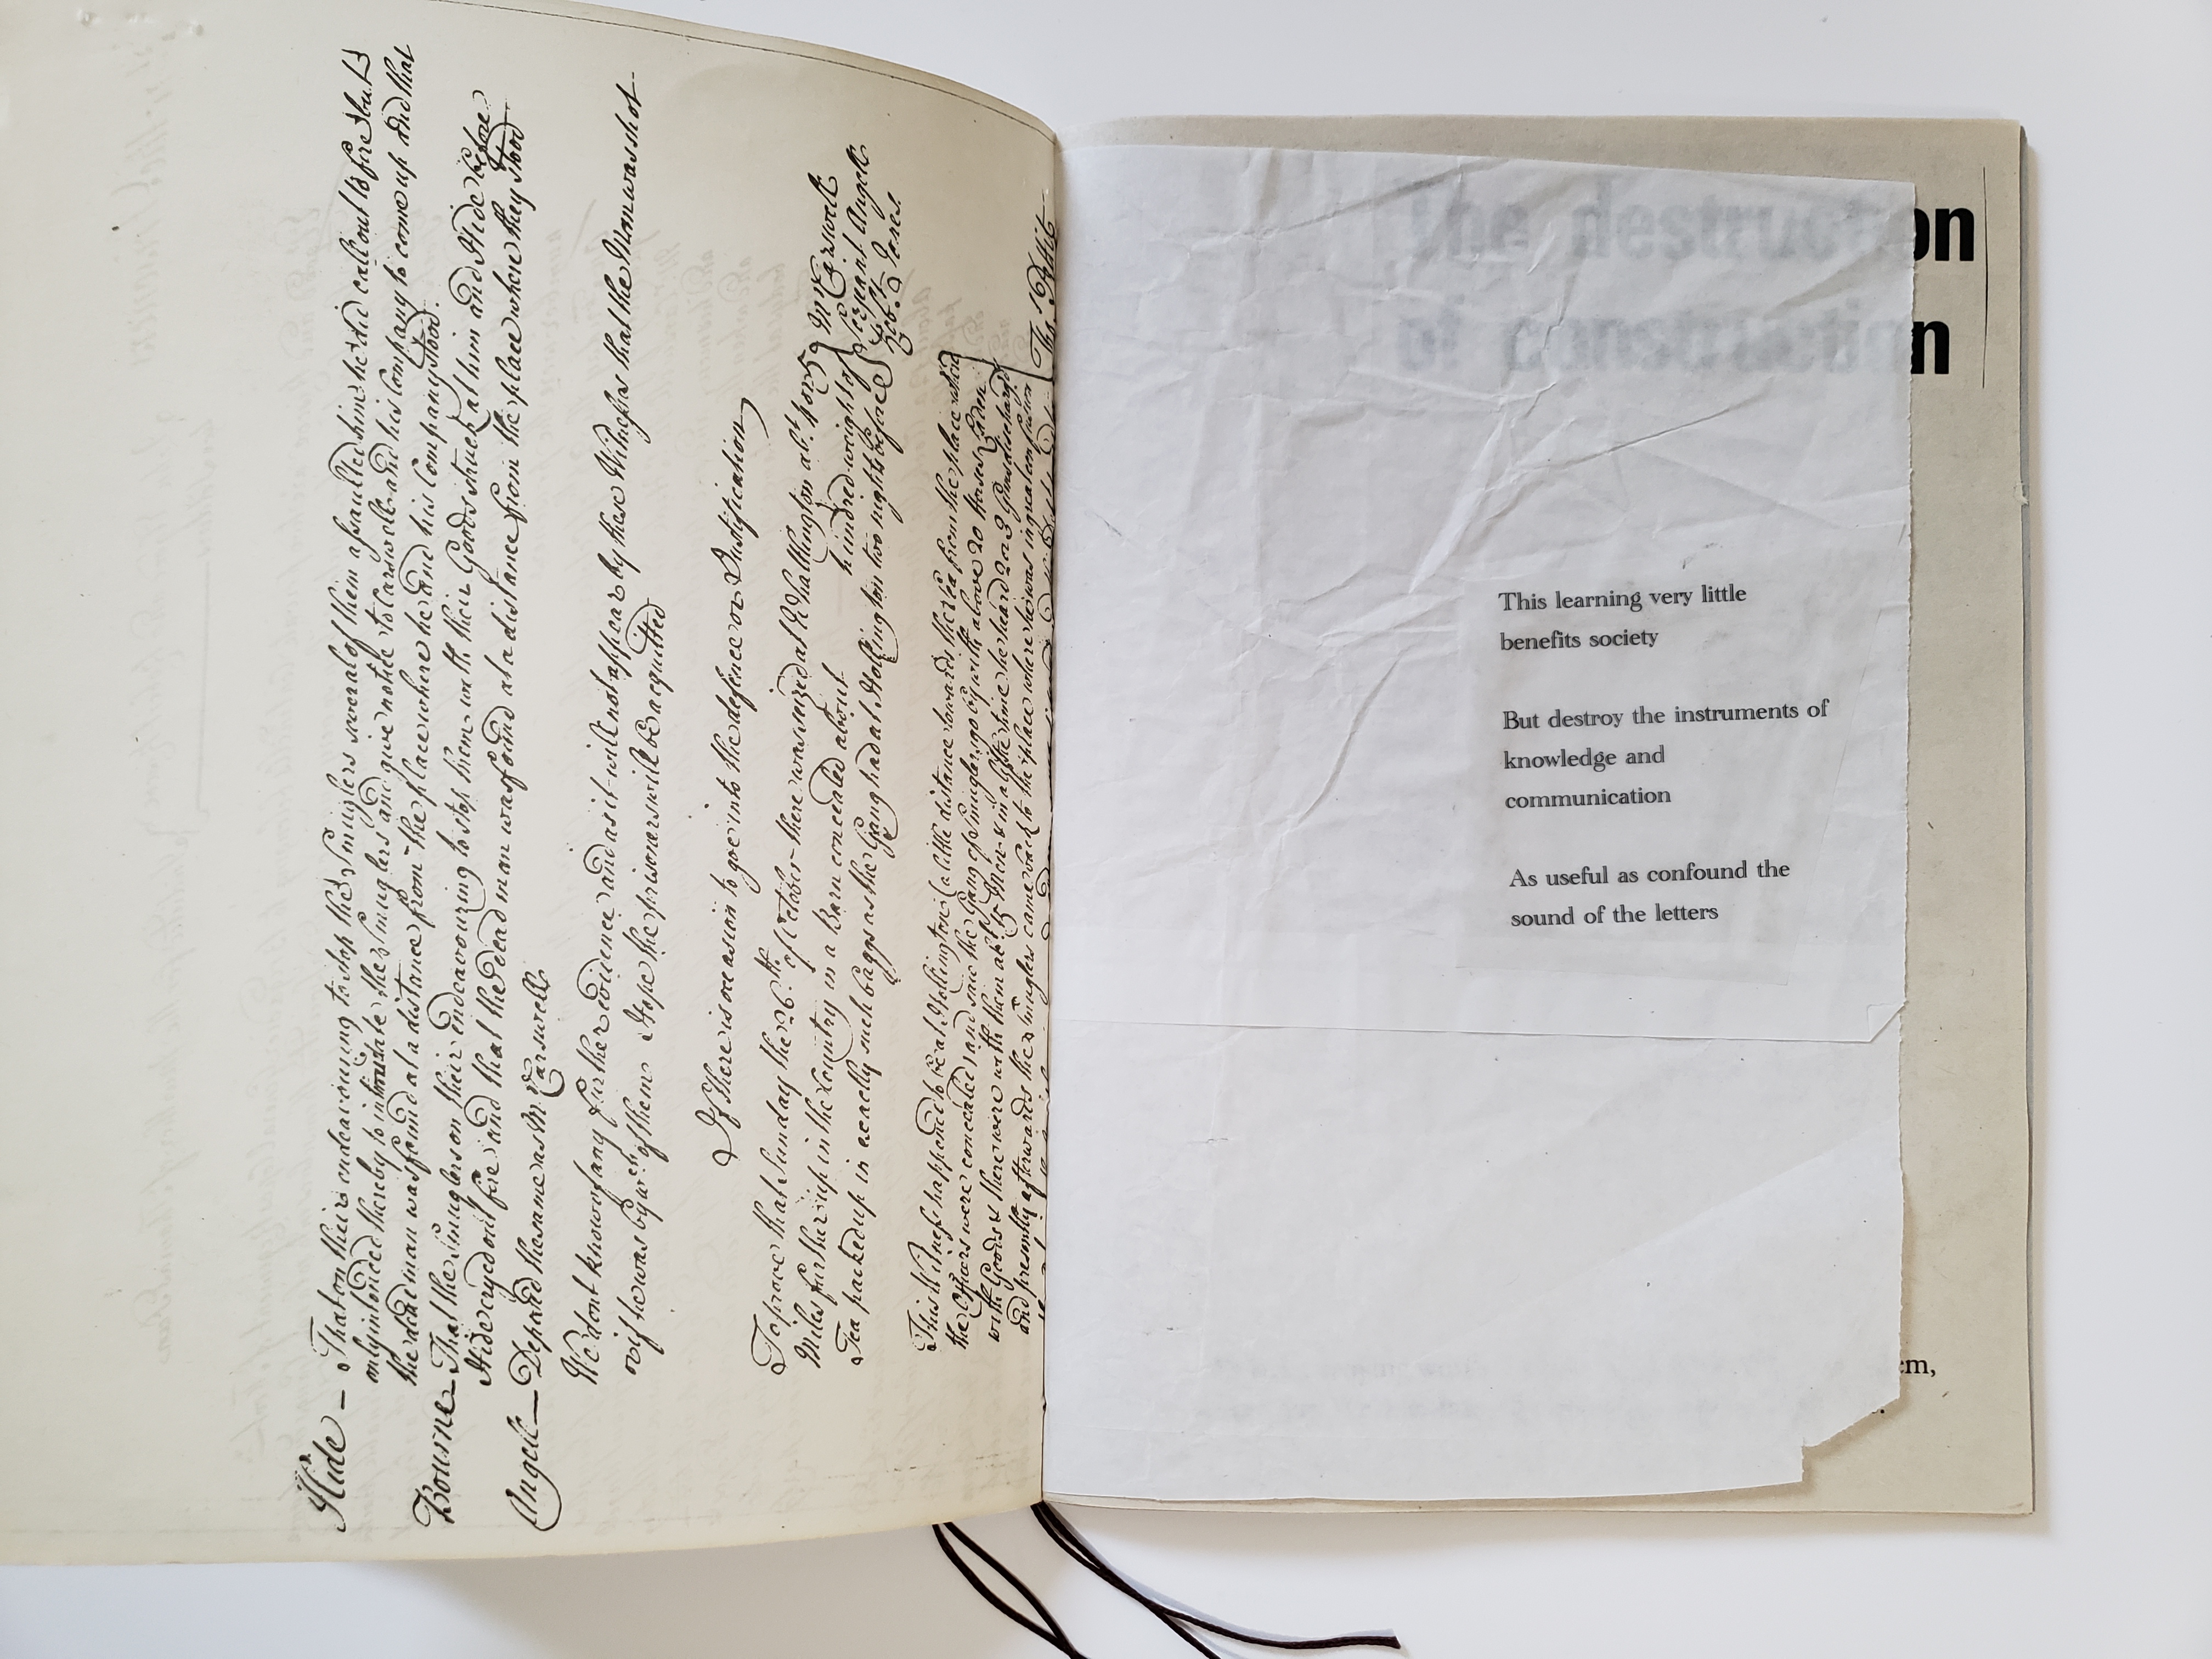 Hide – That on their endeavouring to stop the Smuglers several of them assaulted him he did call out to fire but
only intended thereby to intimidate the Smuglers and give notice to Carswell and his Company to come up and that
the dead man was found at a distance from the place where he and his Company stood.
Bourne – That the Smuglers on their endeavouring to stop them with their Goods struck at him and Hide before
Hide cryed out fire and that the Dead man was found at a distance from the place where they stood
Angell – Depos'd the same as Mr. Carswell
We dont know of any further evidence and as it will not appear by these Witnesses that the Man was shot
or if he was by wch. of them I hope the prisoners will be acquitted
If there is occasion to goe into the defence or Justification
To prove that Sunday the 26th. of October there was seized at Whathington abt. 4 or 5
Miles further up in the Country in a Barn concealed about hundred weight of
Tea packed up in exactly such baggs as the Gang had at Hollington two nights before
Mr. Carswell
Serjeant Angell
Robt. Jones.
This Witness happened to be at Hollington (a little distance towards the Sea from the place where
the Officers were concealed) and saw the Gang of Smuglers go by with above 20 Horses Laden
with Goods & there were with them abt. 15 Men & in a little time he heard 2 or 3 Guns discharged
and presently afterwards the Smuglers came back to the place where he was in great confusion
The destruction
of construction
This learning very little
benefits society
But destroy the instruments of
knowledge and
communication
As useful as confound the
sound of the letters